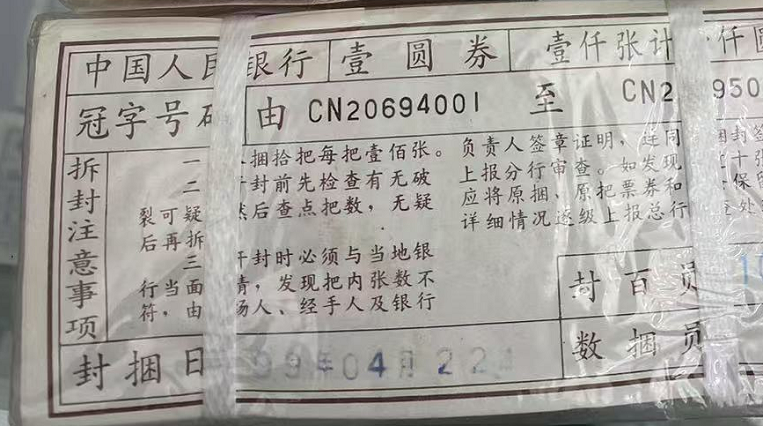 中国人民银行 壹圆券 壹仟张计 仟圆
冠字号码 由 CN20694001 至 CN2 950
拆封注意事项
一 捆拾把每把壹佰张。
二 封前先检查有无破
裂可疑 然后查点把数,无疑
后再拆
三 开封时必须与当地银
行当面 清,发现把内张数不
符,由 场人、经手人及银行
负责人签章证明,连同 捆封签
上报分行审查。如发现 十张
应将原捆、原把票券和 保留
详细情况逐级上报总行 处
封百员 10
数捆员
封捆日 99年04月22